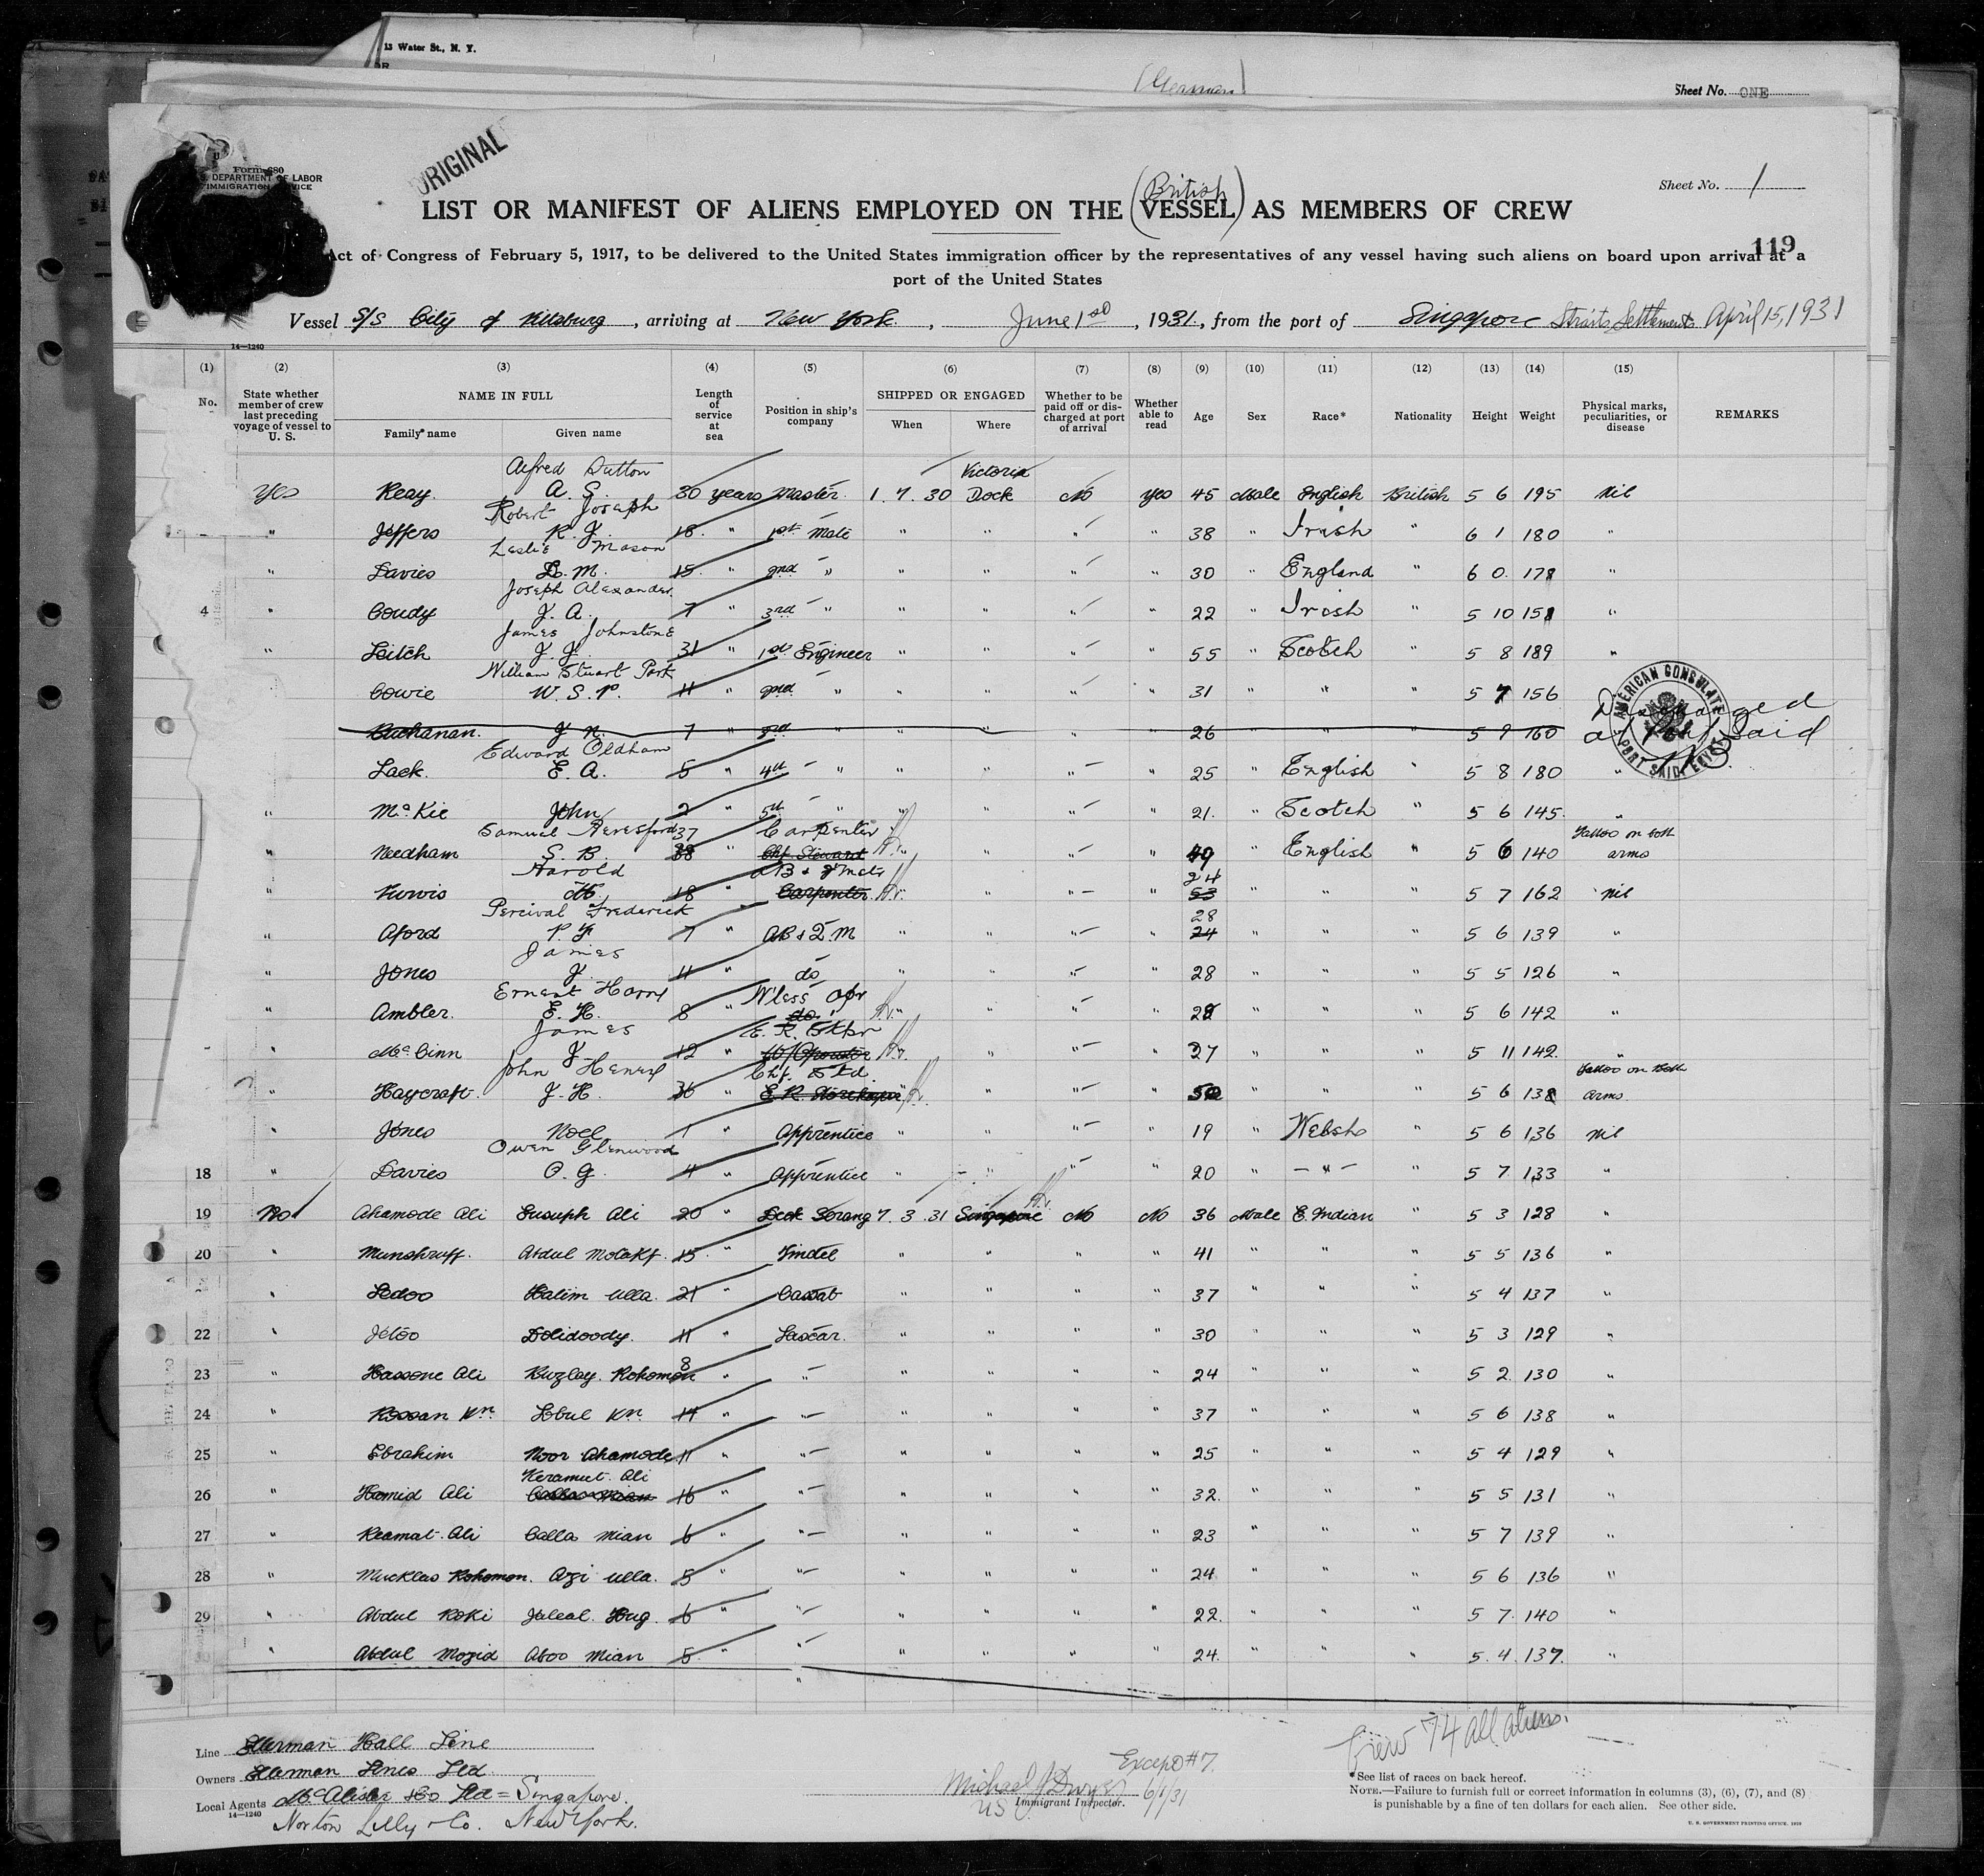 13 Water St., N. Y.
(German)
Sheet No. ONE
ORIGINAL
Form 680
DEPARTMENT OF LABOR
IMMIGRATION SERVICE
Sheet No. 1
(British)
LIST OR MANIFEST OF ALIENS EMPLOYED ON THE VESSEL AS MEMBERS OF CREW
119
Act of Congress of February 5, 1917, to be delivered to the United States immigration officer by the representatives of any vessel having such aliens on board upon arrival at a
port of the United States
Vessel S/S City of , arriving at New York , June 1st , 1931, from the port of Singapore Straits Settlements April 15, 1931
14—1240
(1) (2) (3) (4) (5) (6) (7) (8) (9) (10) (11) (12) (13) (14) (15)
No. State whether member of crew last preceding voyage of vessel to U. S. NAME IN FULL Family name Given name Length of service at sea Position in ship's company SHIPPED OR ENGAGED When Where Whether to be paid off or discharged at port of arrival Whether able to read Age Sex Race* Nationality Height Weight Physical marks, peculiarities, or disease REMARKS
Alfred Dutton Victoria
Yes Reay. A. G. 30 years Master. 1. 7. 30 Dock No Yes 45 Male English British 5 6 195 Nil
Robert Joseph
" Jeffers R. J. 18 " 1st Mate " " " " 38 " Irish " 6 1 180 "
Leslie Mason
" Davies L. M. 15 " 2nd " " " " " 30 " England " 6 0 178 "
Joseph Alexander
4 " Coudy J. A. 7 " 3rd " " " " " 22 " Irish " 5 10 158 "
James Johnstone
" Leitch J. J. 31 " 1st Engineer " " " " 55 " Scotch " 5 8 189 "
William Stuart Park
Cowie W. S. P. 11 " 2nd " " " " " 31 " " " 5 7 156
Buchanan. J. N. 7 " 3rd " " " " 26 " " " 5 9 160 Discharged at Port Said
AMERICAN CONSULATE
PORT SAID, EGYPT
Edward Oldham
Lack. E. A. 5 " 4th " " " " " 25 " English " 5 8 180 "
" McKie John 2 " 5th " " " " " 21. " Scotch " 5 6 145. "
Samuel Beresford 37 Carpenter Tattoo on both
" Needham S. B. 38 " Chf. Steward " " " " 49 " English " 5 6 140 arms
Harold 24
" H. 18 " Carpenter " " " 53 " " " 5 7 162 Nil
Percival Frederick 28
" Aford P. F. 7 " AB & Q.M " " " " 24 " " " 5 6 139 "
James
" Jones J. 11 " do " " " " 28 " " " 5 5 126 "
Ernest Harry W'less Opr
" Ambler. E. H. 8 " do. " " " " 28 " " " 5 6 142 "
James E. R. Stkpr
" McGinn J. 12 " W/Operator " " " 27 " " " 5 11 142. "
John Henry Chf. Std. Tattoo on Both
" Haycraft. J. H. 36 " E. R. Storekeeper " " " 50 " " " 5 6 138 Arms.
" Jones Noel 1 " Apprentice " " " " 19 " Welsh " 5 6 136 Nil
Owen Glenwood
18 " Davies O. G. 4 " Apprentice " " " " 20 " — " — " 5 7 133 "
19 No Ahamode Ali Eusuph Ali 20 " Deck Serang 7. 3. 31 Singapore No No 36 Male E. Indian " 5 3 128 "
20 " Munshruff. Abdul Molakf. 15 " Tindel " " " " 41 " " " 5 5 136 "
" Sedoo Halim Ulla. 21 " Cassab " " " " 37 " " " 5 4 137 "
22 " Jetoo Dolidoody. 11 " Lascar. " " " " 30 " " " 5 3 129 "
23 " Hassone Ali Buzlay Rohomon 8 " " " " " " 24 " " " 5 2 130 "
24 " Rossan Kn. Lobul Kn. 14 " " " " " " 37 " " " 5 6 138 "
25 " Ebrahim Noor Ahamode 11 " " " " " " 25 " " " 5 4 129 "
Keramut. Ali
26 " Hamid Ali Calla Mian 16 " " " " " " 32. " " " 5 5 131 "
27 " Keamat. Ali Calla Mian 6 " " " " " " 23 " " " 5 7 139 "
28 " Mucklas Rohomon. Azi Ulla. 5 " " " " " " 24 " " " 5 6 136 "
29 " Abdul Roki Jaleal. Hug. 6 " " " " " " 22. " " " 5 7. 140 "
" Abdul Mozid Aboo Mian 5 " " " " " " 24. " " " 5. 4. 137. "
Line Ellerman Hall Line
Owners Ellerman Lines Ltd.
Local Agents McAlister & Co Ltd = Singapore.
14—1240
Norton Lilly & Co. New York.
Except #7.
Michael J Dwyer 6/1/31
US Immigrant Inspector.
Crew 74 all aliens.
*See list of races on back hereof.
NOTE.—Failure to furnish full or correct information in columns (3), (6), (7), and (8)
is punishable by a fine of ten dollars for each alien. See other side.
U. S. GOVERNMENT PRINTING OFFICE, 1929